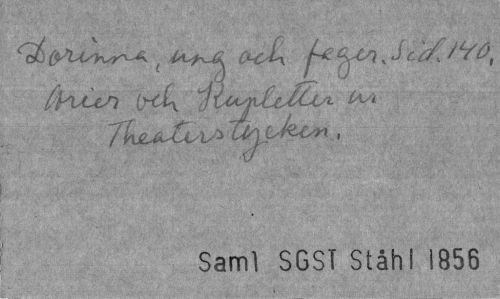 Dorinna, ung och fager. Sid. 140.
Arier och Kupletter ur
Theaterstycken.
Saml SGST Ståhl 1856